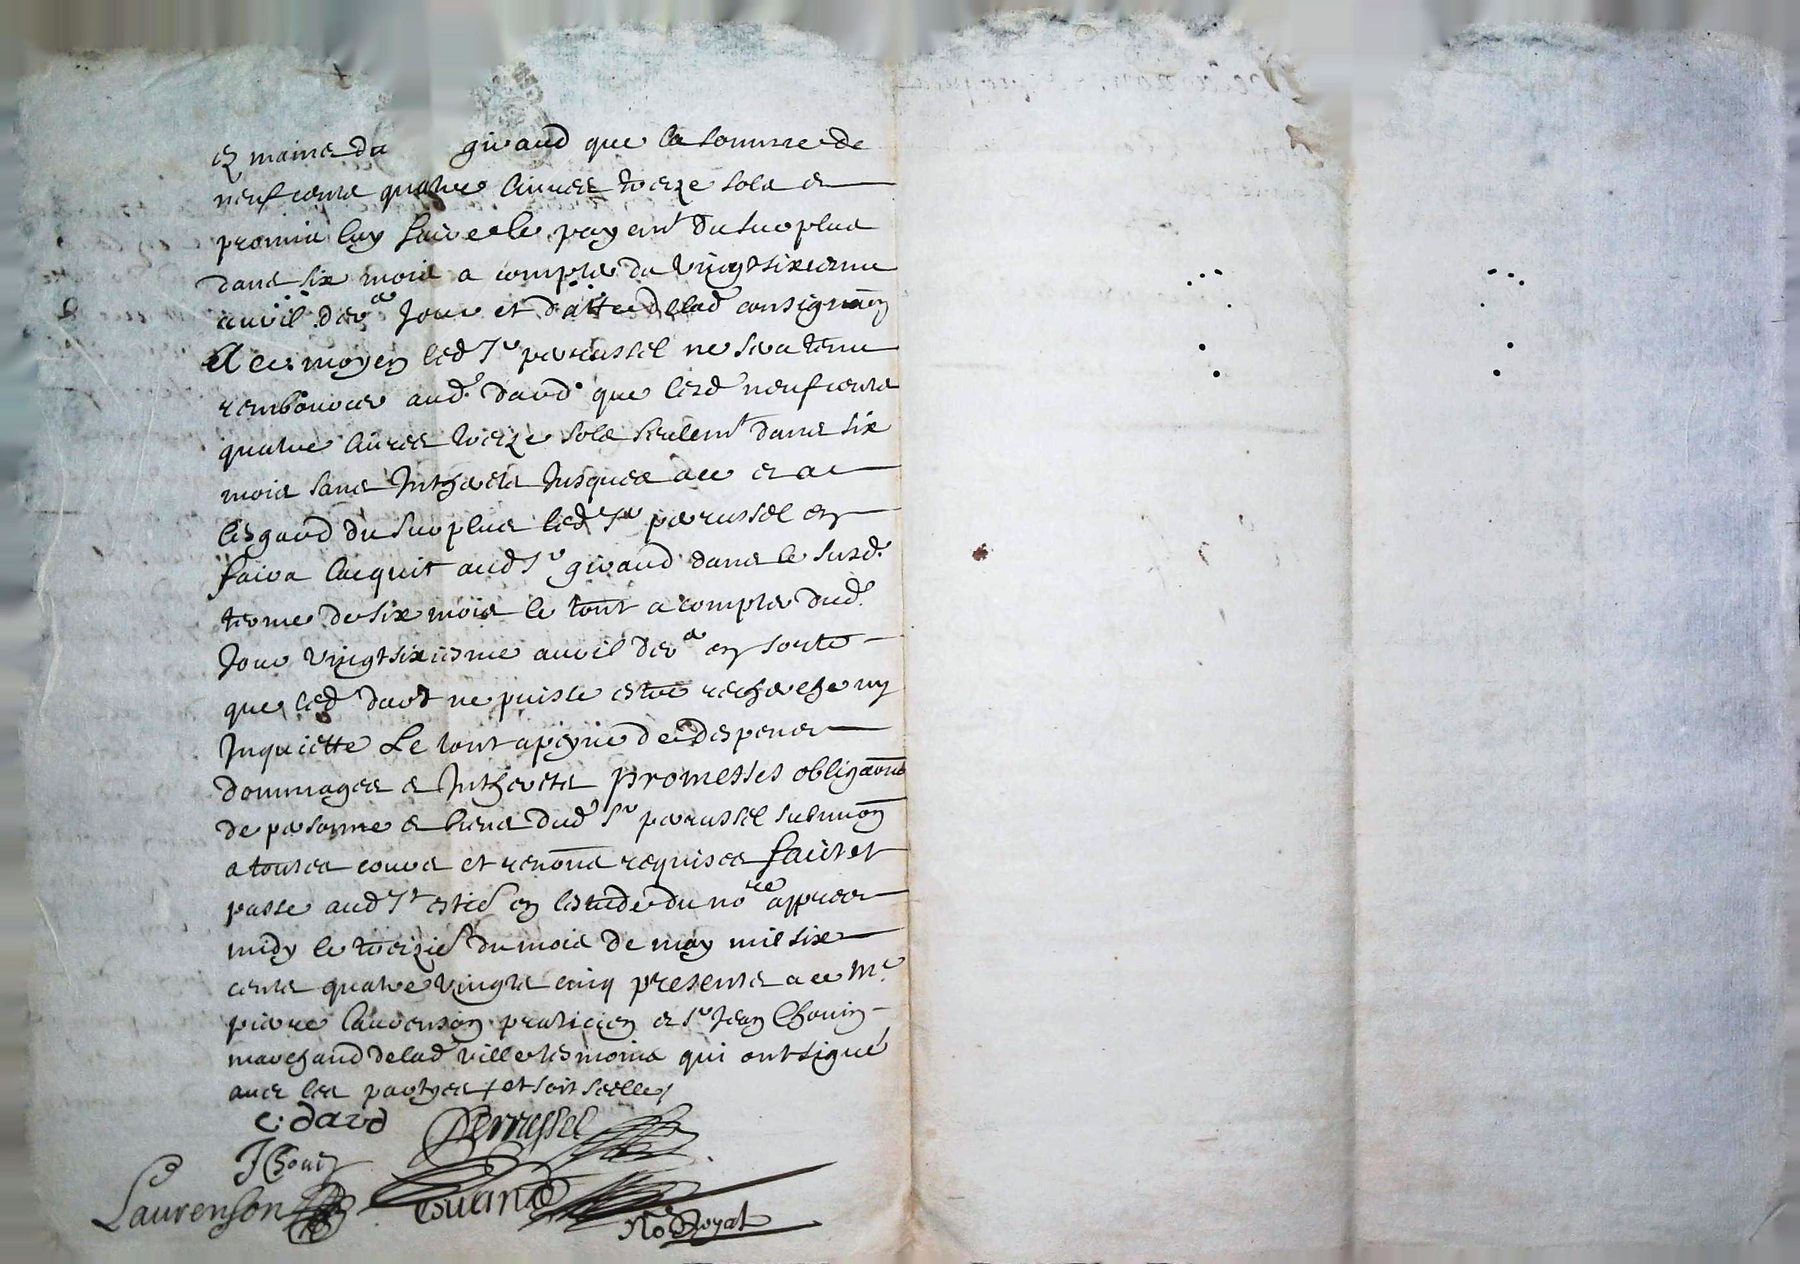 es mains du giraud que la somme de
neuf cents quatre livres treize sols et
promis luy faire le payemt du surplus
dans six mois a compter du vingtsixieme
avril der Jour et datte de lad consignaon
et ce moyen led Sr perussel ne sera tenu
rembourcer aud. davd que lesd neuf cents
quatre livres treize sols seulemt dans six
mois sans Intherets Jusques a ce et a
lesgard du surplus led Sr perussel en
faira lacquit aud Sr giraud dans le susd.
terme de six mois le tout a compter dud.
Jour vingtsixiesme avril der en sorte
que led davd ne puisse estre recherche ny
Inquiette Le tout a peyne de despens
dommages et Intherets promesses obligaons
de personne et biens dud Sr perussel submon
a toutes cours et renons requises fait et
passe aud St en lestude du nore apprees
midy le treizie du mois de may mil six
cents quatre vingts cinq presents a ce Me
pierre laurenson praticien et Sr Jean Chouin
marchand de lad ville tesmoins qui ont signé
avec les partyes / et soit scelle /
c. davd Perrussel
J Chouin
Laurenson
No Royal